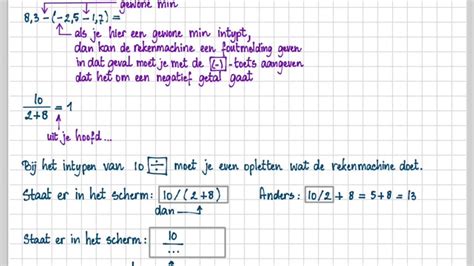 gewone min
8,3 - (-2,5 - 1,7) =
als je hier een gewone min intypt,
dan kan de rekenmachine een foutmelding geven
in dat geval moet je met de (-) -toets aangeven
dat het om een negatief getal gaat
10
2+8 = 1
uit je hoofd...
Bij het intypen van 10 ÷ moet je even opletten wat de rekenmachine doet.
Staat er in het scherm: 10/(2+8) Anders: 10/2 + 8 = 5+8 = 13
dan
Staat er in het scherm: 10
...
dan